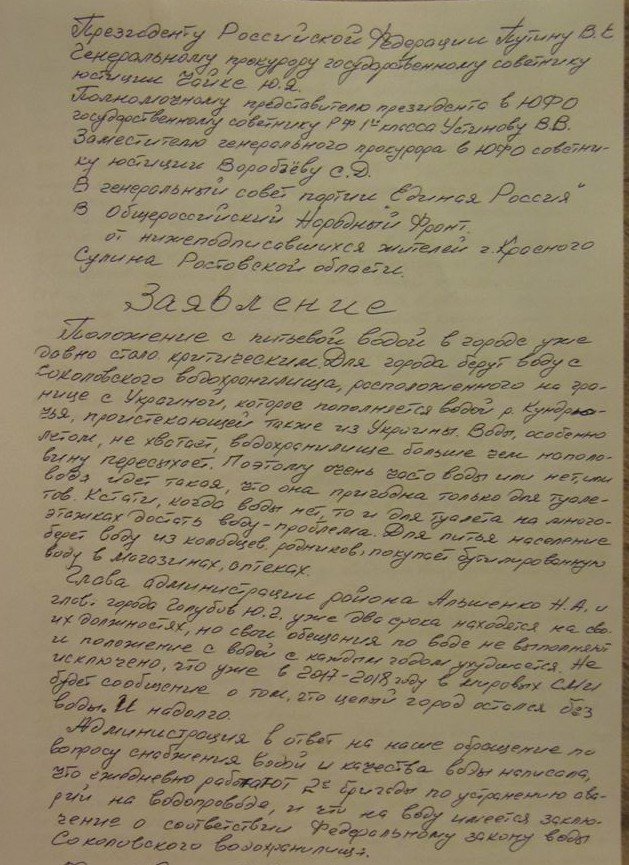 Президенту Российской Федерации Путину В.В
Генеральному прокурору государственному советнику
юстиции Чайке Ю.Я.
Полномочному представителю президента в ЮФО
государственному советнику РФ 1го класса Устинову В.В.
Заместителю генерального прокурора в ЮФО советни-
ку юстиции Воробьёву С.Д.
В генеральный совет партии "Единая Россия"
В Общероссийский Народный Фронт.
от нижеподписавшихся жителей г. Красного
Сулина Ростовской области.
Заявление
Положение с питьевой водой в городе уже
давно стало критическим. Для города берут воду с
Соколовского водохранилища, расположенного на гра-
нице с Украиной, которое пополняется водой р. Кундрю-
чья, проистекающей также из Украины. Воды, особенно
летом, не хватает, водохранилище больше чем наполо-
вину пересыхает. Поэтому очень часто воды или нет, или
вода идет такая, что она пригодна только для туале-
тов. Кстати, когда воды нет, то и для туалета на много-
этажках достать воду-проблема. Для питья население
берет воду из колодцев, родников, покупает бутилированную
воду в магазинах, аптеках.
Глава администрации района Альшенко Н.А. и
глава города Голубов Ю.Г. уже два срока находятся на сво-
их должностях, но свои обещания по воде не выполняют
и положение с водой с каждым годом ухудшается. Не
исключено, что уже в 2017-2018 году в мировых СМИ
будет сообщение о том, что целый город остался без
воды. И надолго.
Администрация в ответ на наше обращение по
вопросу снабжения водой и качества воды написала,
что ежедневно работают 2е бригады по устранению ава-
рий на водопроводе, и что на воду имеется заклю-
чение о соответствии Федеральному закону воды
Соколовского водохранилища.